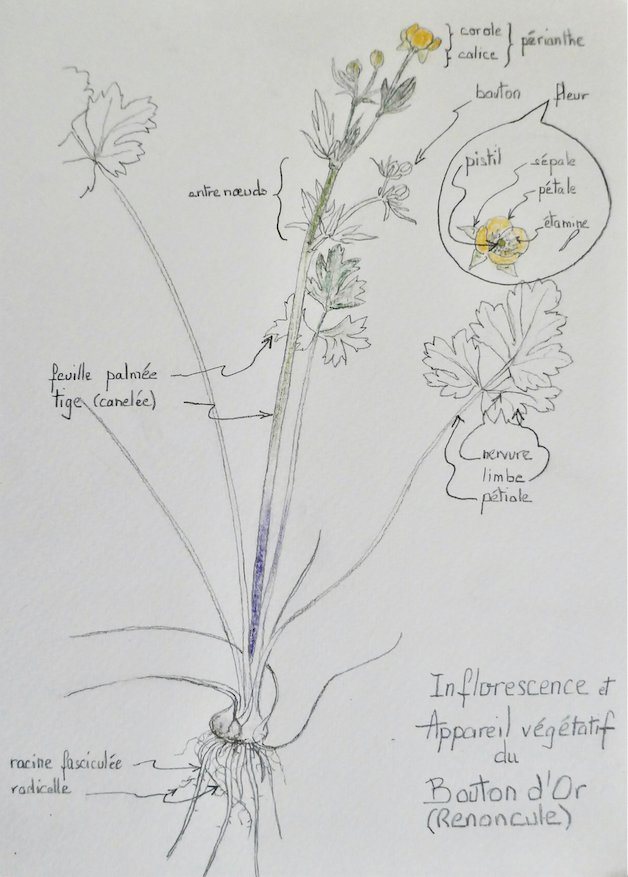 corole
calice
périanthe
bouton
fleur
pistil
sépale
pétale
étamine
entre nœuds
feuille palmée
tige (canelée)
nervure
limbe
pétiole
racine fasciculée
radicelle
Inflorescence et
Appareil végétatif
du
Bouton d'Or
(Renoncule)